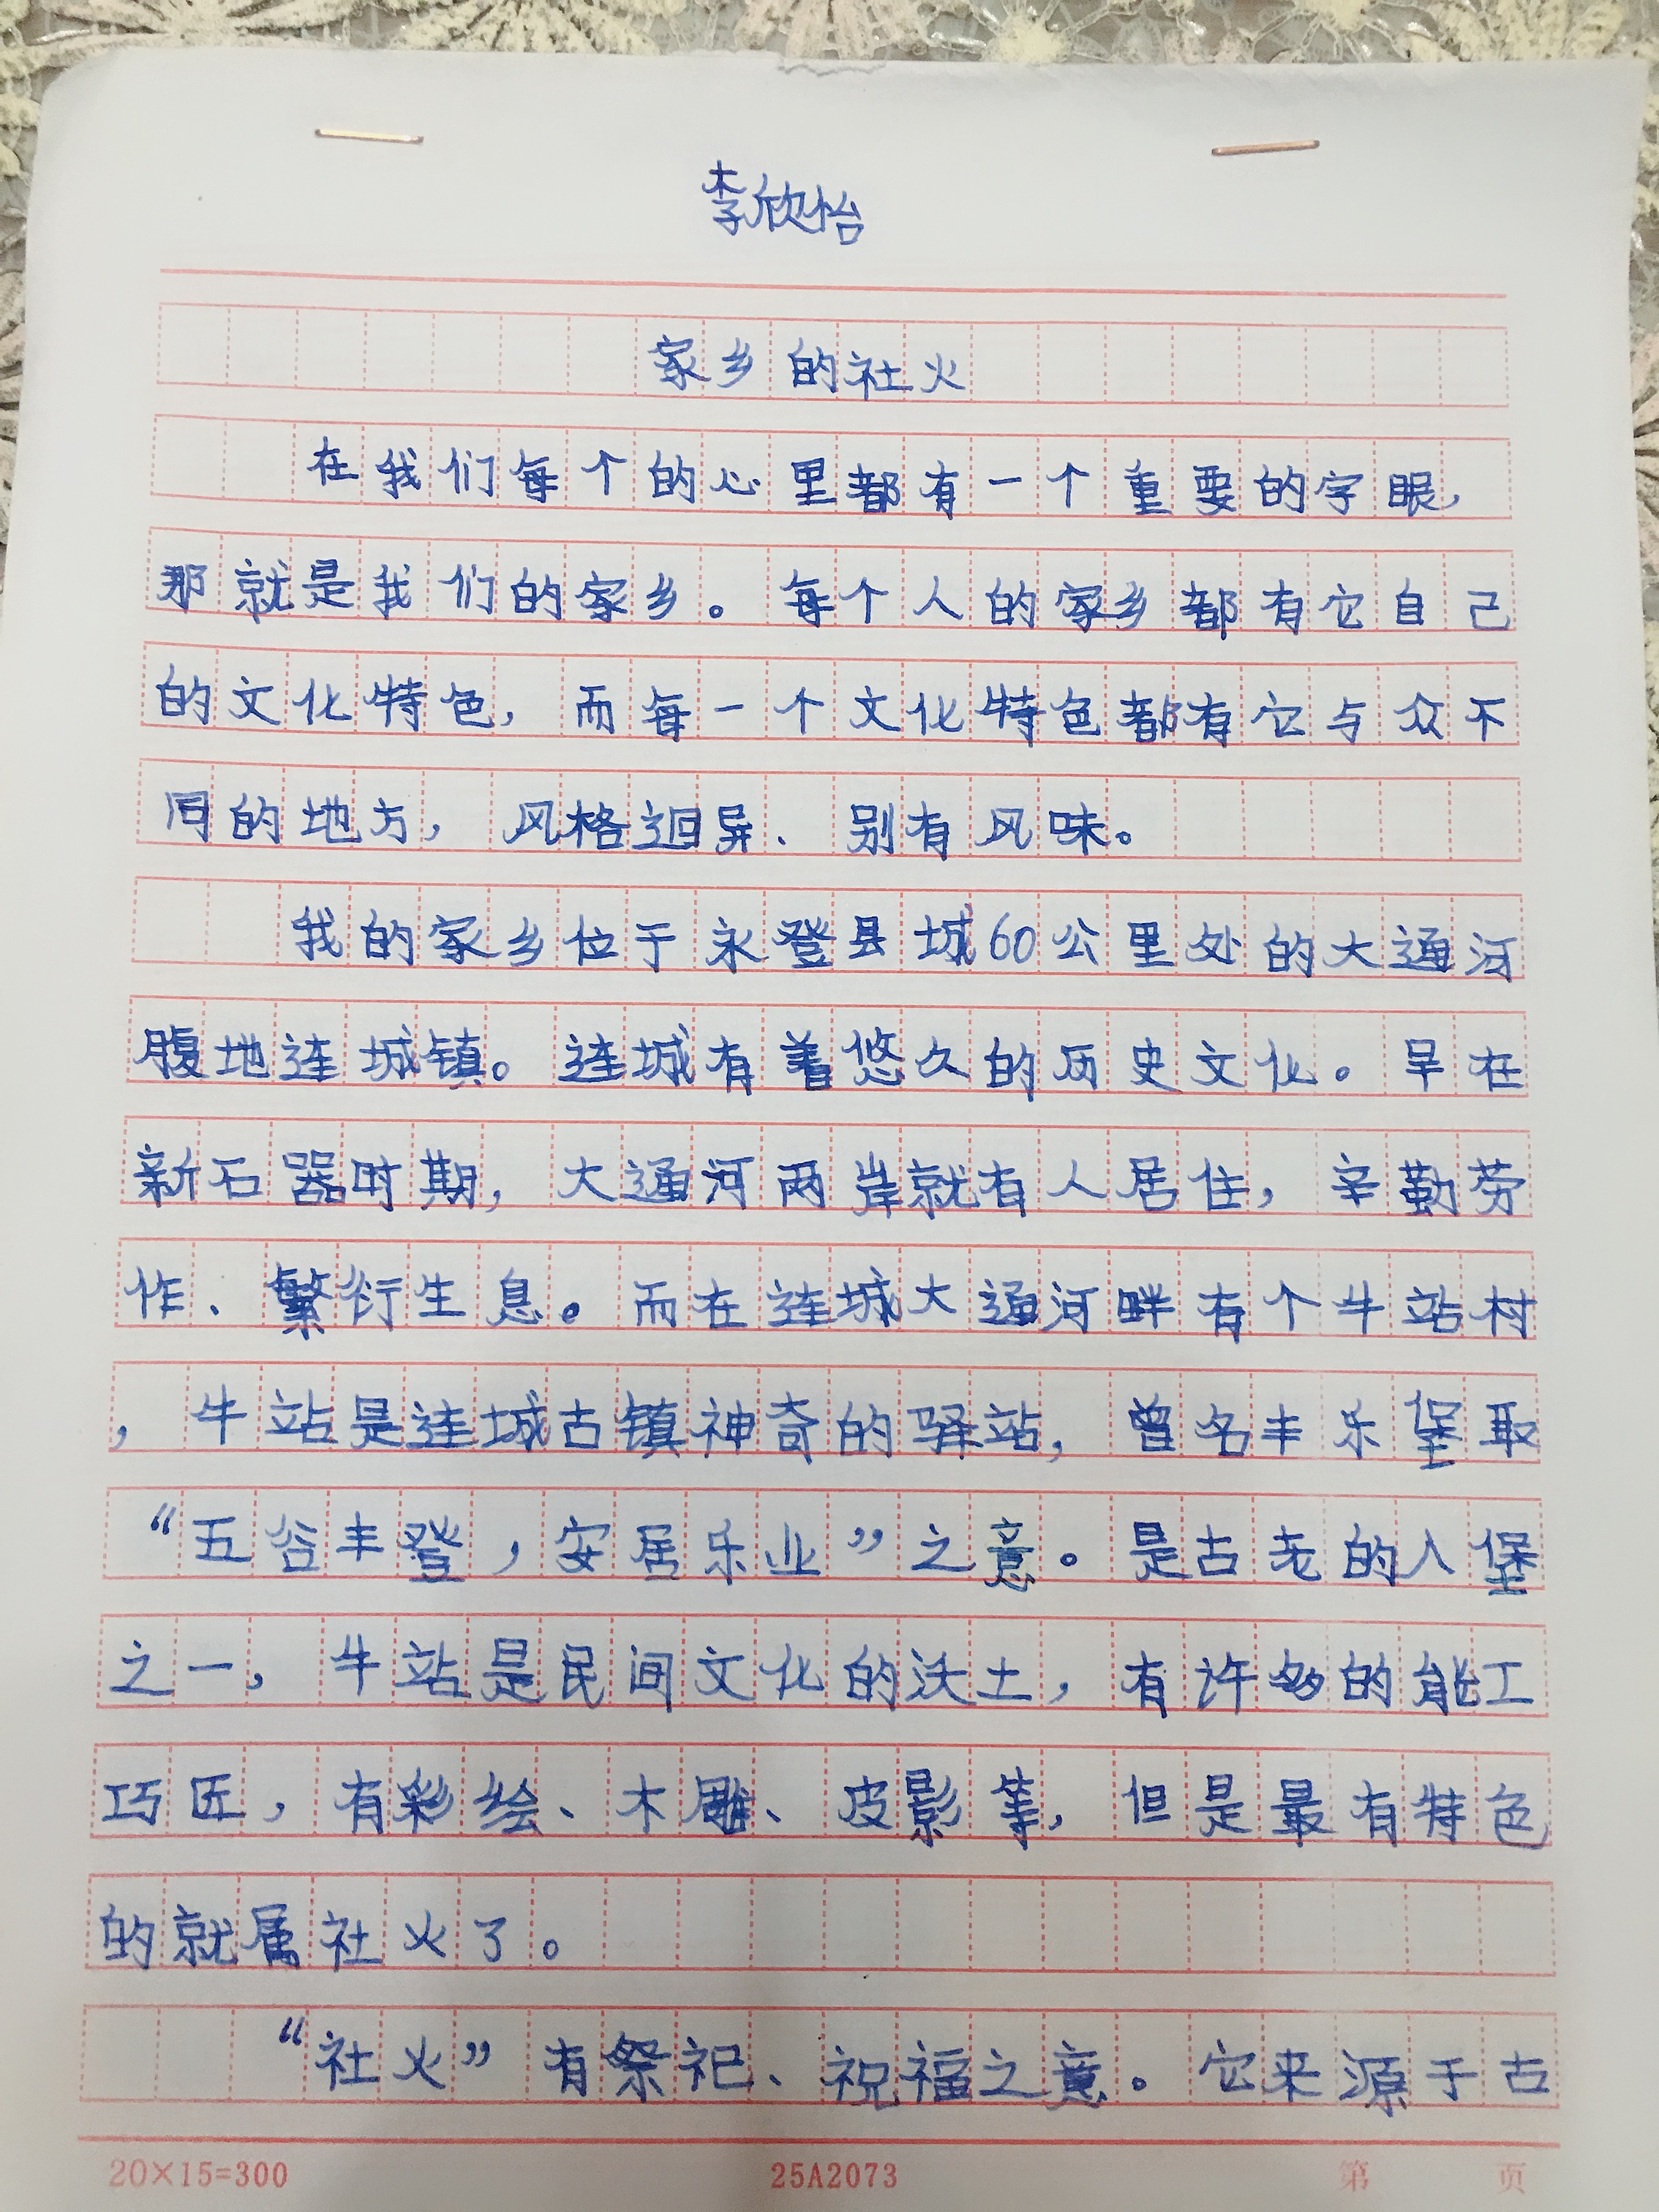 李欣怡
家乡的社火
在我们每个的心里都有一个重要的字眼，
那就是我们的家乡。每个人的家乡都有它自己
的文化特色，而每一个文化特色都有它与众不
同的地方，风格迥异、别有风味。
我的家乡位于永登县城60公里处的大通河
腹地连城镇。连城有着悠久的历史文化。早在
新石器时期，大通河两岸就有人居住，辛勤劳
作、繁衍生息。而在连城大通河畔有个牛站村
，牛站是连城古镇神奇的驿站，曾名丰乐堡取
“五谷丰登，安居乐业”之意。是古老的八堡
之一，牛站是民间文化的沃土，有许多的能工
巧匠，有彩绘、木雕、皮影等，但是最有特色
的就属社火了。
“社火”有祭祀、祝福之意。它来源于古
20×15=300 25A2073 第 页